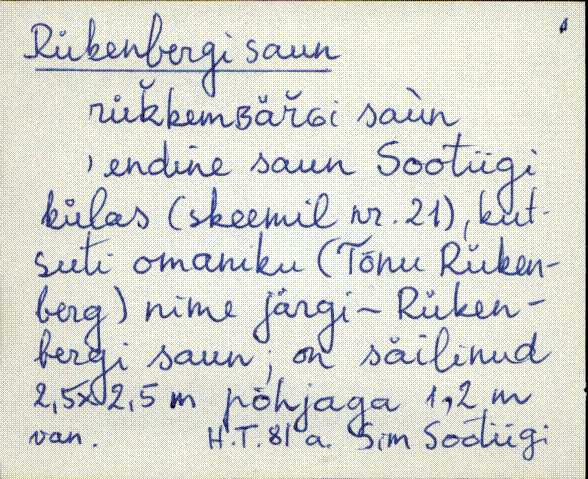 Rükenbergi saun
rük̆kemʙär̆ɢi saùn
, endine saun Sootiigi
külas (skeemil nr. 21), kut-
suti omaniku (Tõnu Rüken-
berg) nime järgi ~ Rüken-
bergi saun; on säilinud
2,5x2,5 m põhjaga 1,2 m
van. H.T. 81 a. Sim Sootiigi